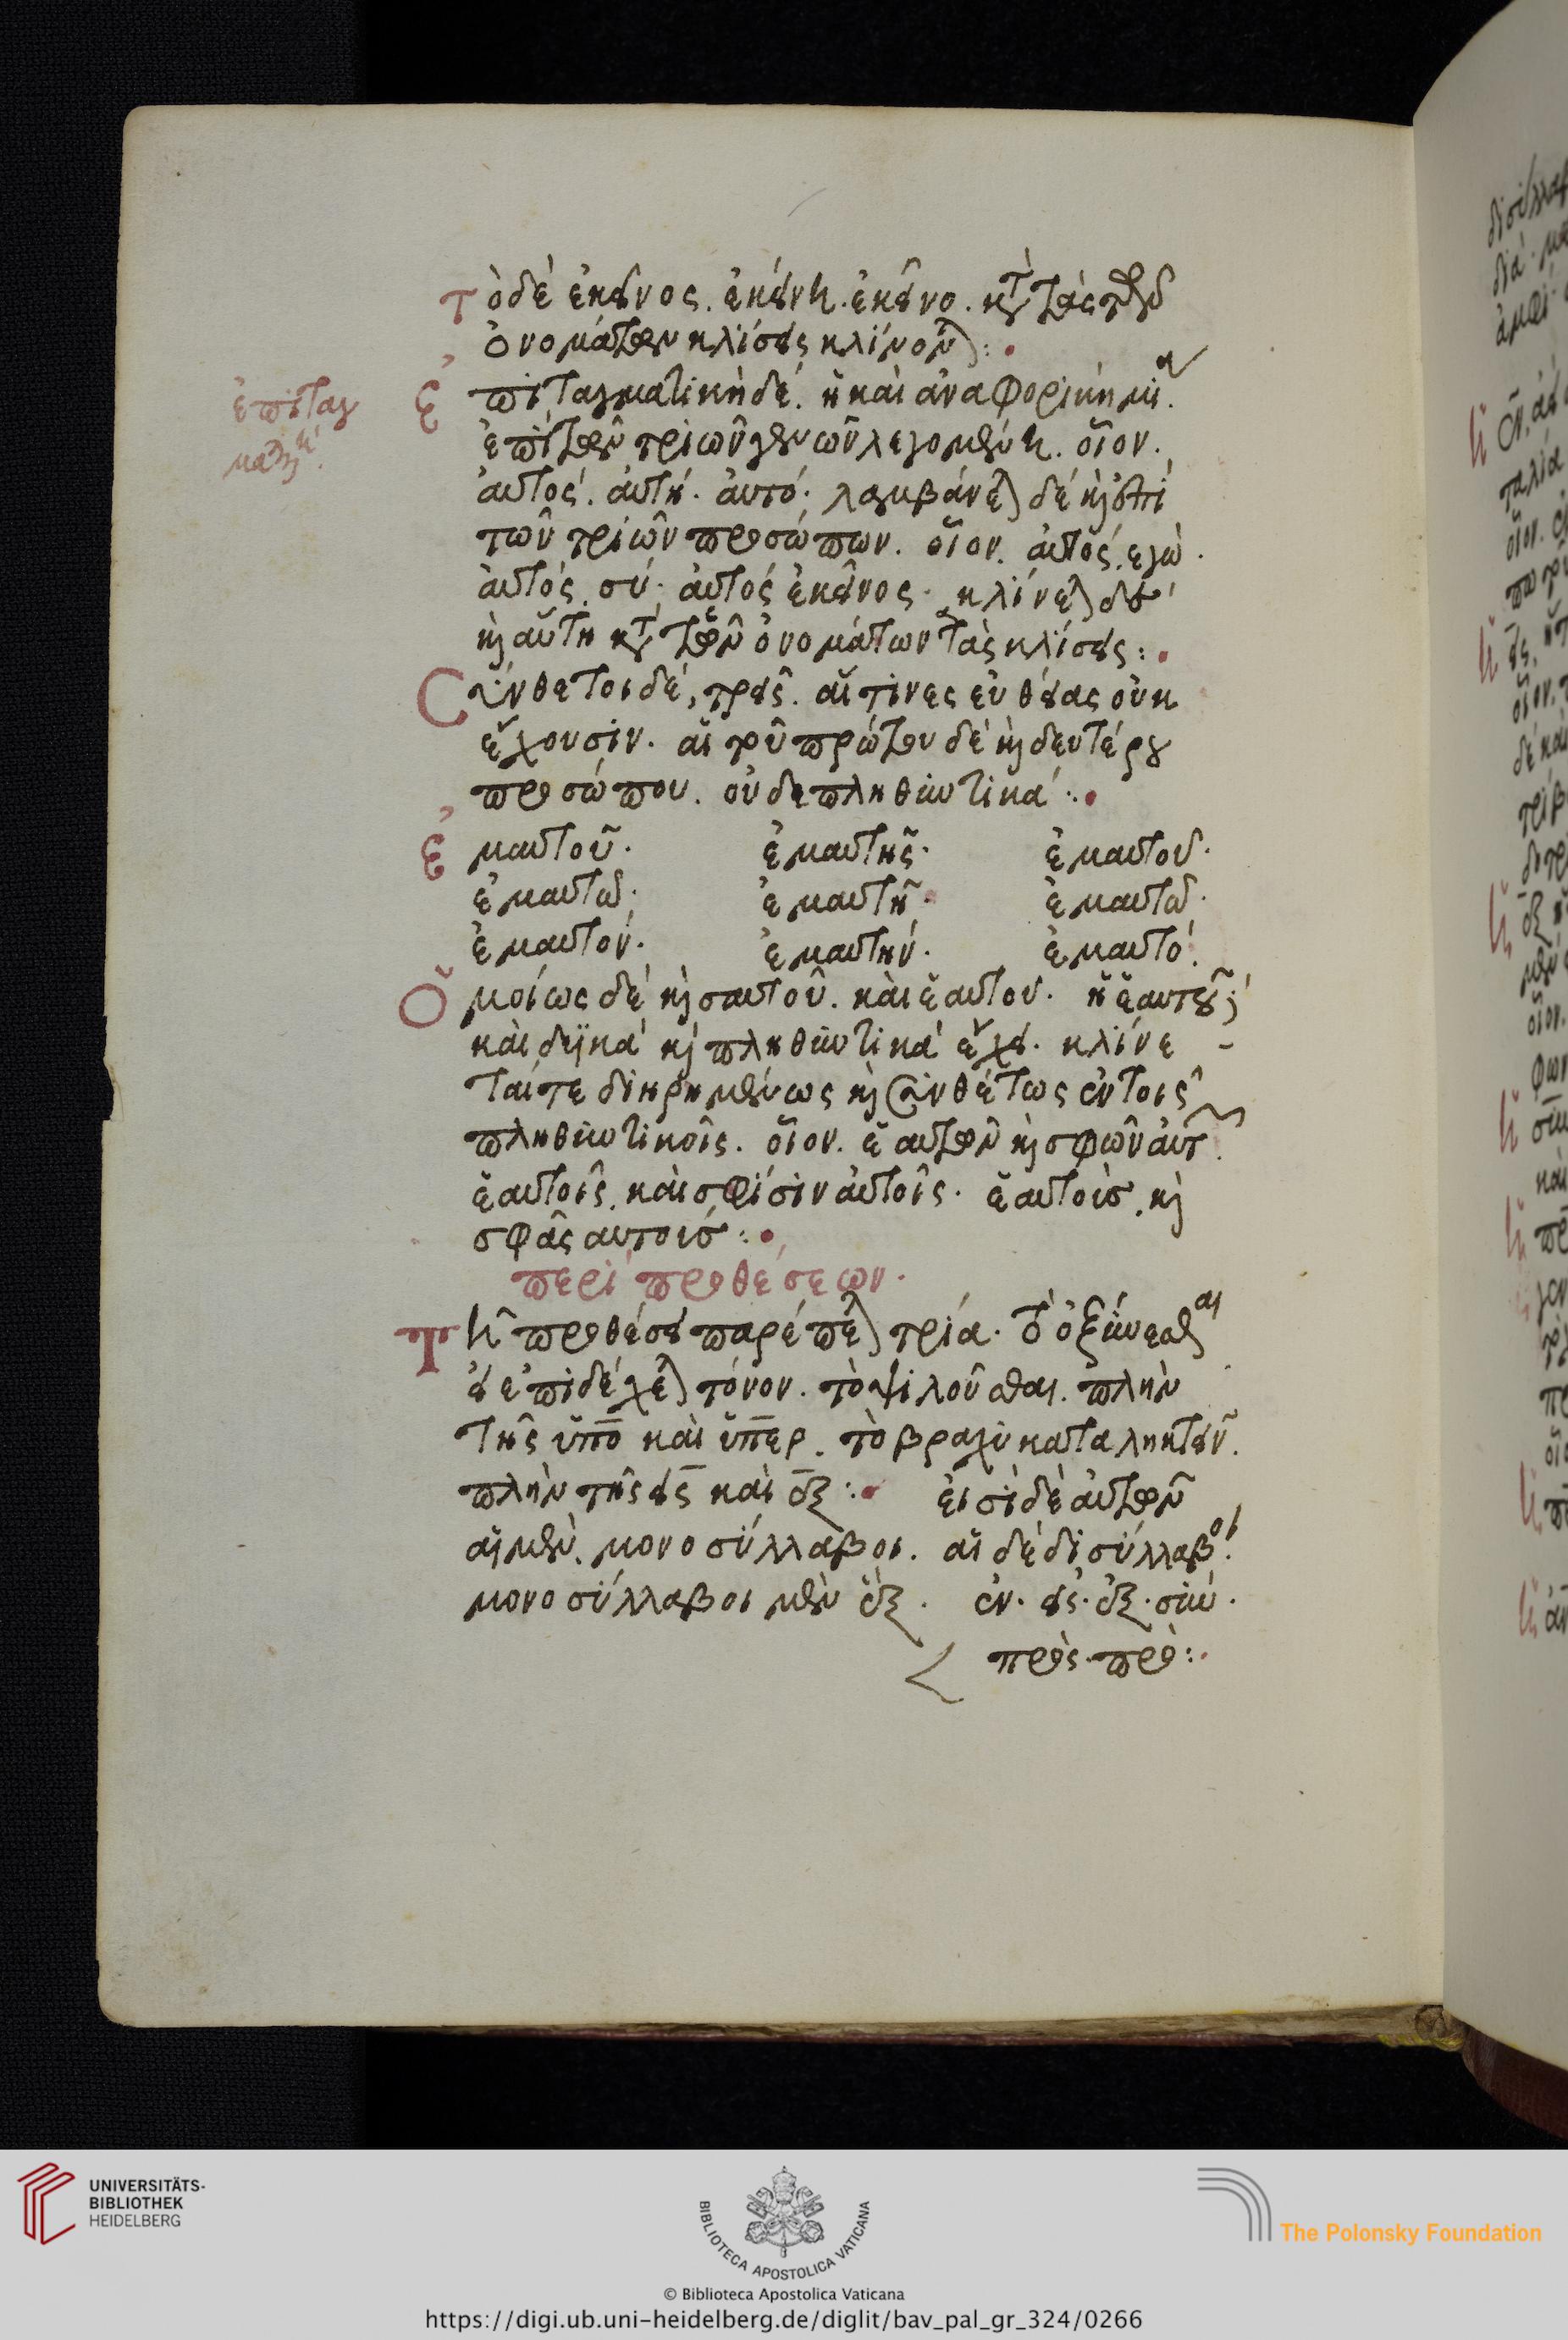 τὸ δὲ ἐκεῖνος. ἐκείνη. ἐκεῖνο. κατὰ τὰς τῶν
ὀνομάτων κλίσεις κλίνονται :
ἐπιταγματικὴ δέ. ἡ καὶ ἀναφορικὴ μία.
ἐπιταγ
ματικὴ.
ἐπὶ τῶν τριῶν γενῶν λεγομένη. οἷον.
αὐτός. αὐτή. αὐτό. λαμβάνεται δὲ καὶ ἐπὶ
τῶν τριῶν προσώπων. οἷον. αὐτός. εγὼ.
αὐτός. σύ. αὐτός ἐκεῖνος. κλίνεται δὲ
καὶ αὕτη κατὰ τῶν ὀνομάτων τὰς κλίσεις :
Σύνθετοι δέ, τρεῖς. αἵτινες εὐθείας οὐκ
ἔχουσιν. αἱ τοῦ πρώτου δὲ καὶ δευτέρου
προσώπου. οὐδε πληθυντικά :
Ἐμαυτοῦ. ἐμαυτῆς. ἐμαυτοῦ.
ἐμαυτῶ. ἐμαυτῆ. ἐμαυτῶ.
ἐμαυτόν. ἐμαυτήν. ἐμαυτό.
Ὁμοίως δὲ καὶ σαυτοῦ. καὶ ἑαυτοῦ. ἡ ἑαυτοῦ
καὶ δυϊκὰ καὶ πληθυντικὰ ἔχει. κλίνε-
ταί τε διηρημένως καὶ συνθέτως ἐν τοῖς
πληθυντικοῖς. οἷον. ἑαυτῶν καὶ σφῶν αὐτῶν.
ἑαυτοῖς. καὶ σφίσιν αὐτοῖς. ἑαυτοὺς. καὶ
σφᾶς αυτούς :
περὶ προθέσεων.
Τῇ προθέσει παρέπεται τρία. τὸ ὀξύνεσθαι
εἰ ἐπιδέχεται τόνον. τὸ ψιλοῦσθαι. πλὴν
τῆς ὑπὸ καὶ ὑπερ. τὸ βραχυκαταληκτεῖν.
πλὴν τῆς εις καὶ εξ : εἰσὶ δὲ αὐτῶν
αἱ μὲν. μονοσύλλαβοι. αἱ δὲ δισύλλαβοι.
μονοσύλλαβοι μὲν ἓξ. ἐν. εἰς. ἐξ. σὺν.
πρὸς. πρὸ :
UNIVERSITÄTS-
BIBLIOTHEK
HEIDELBERG
BIBLIOTECA APOSTOLICA VATICANA
The Polonsky Foundation
© Biblioteca Apostolica Vaticana
https://digi.ub.uni-heidelberg.de/diglit/bav_pal_gr_324/0266